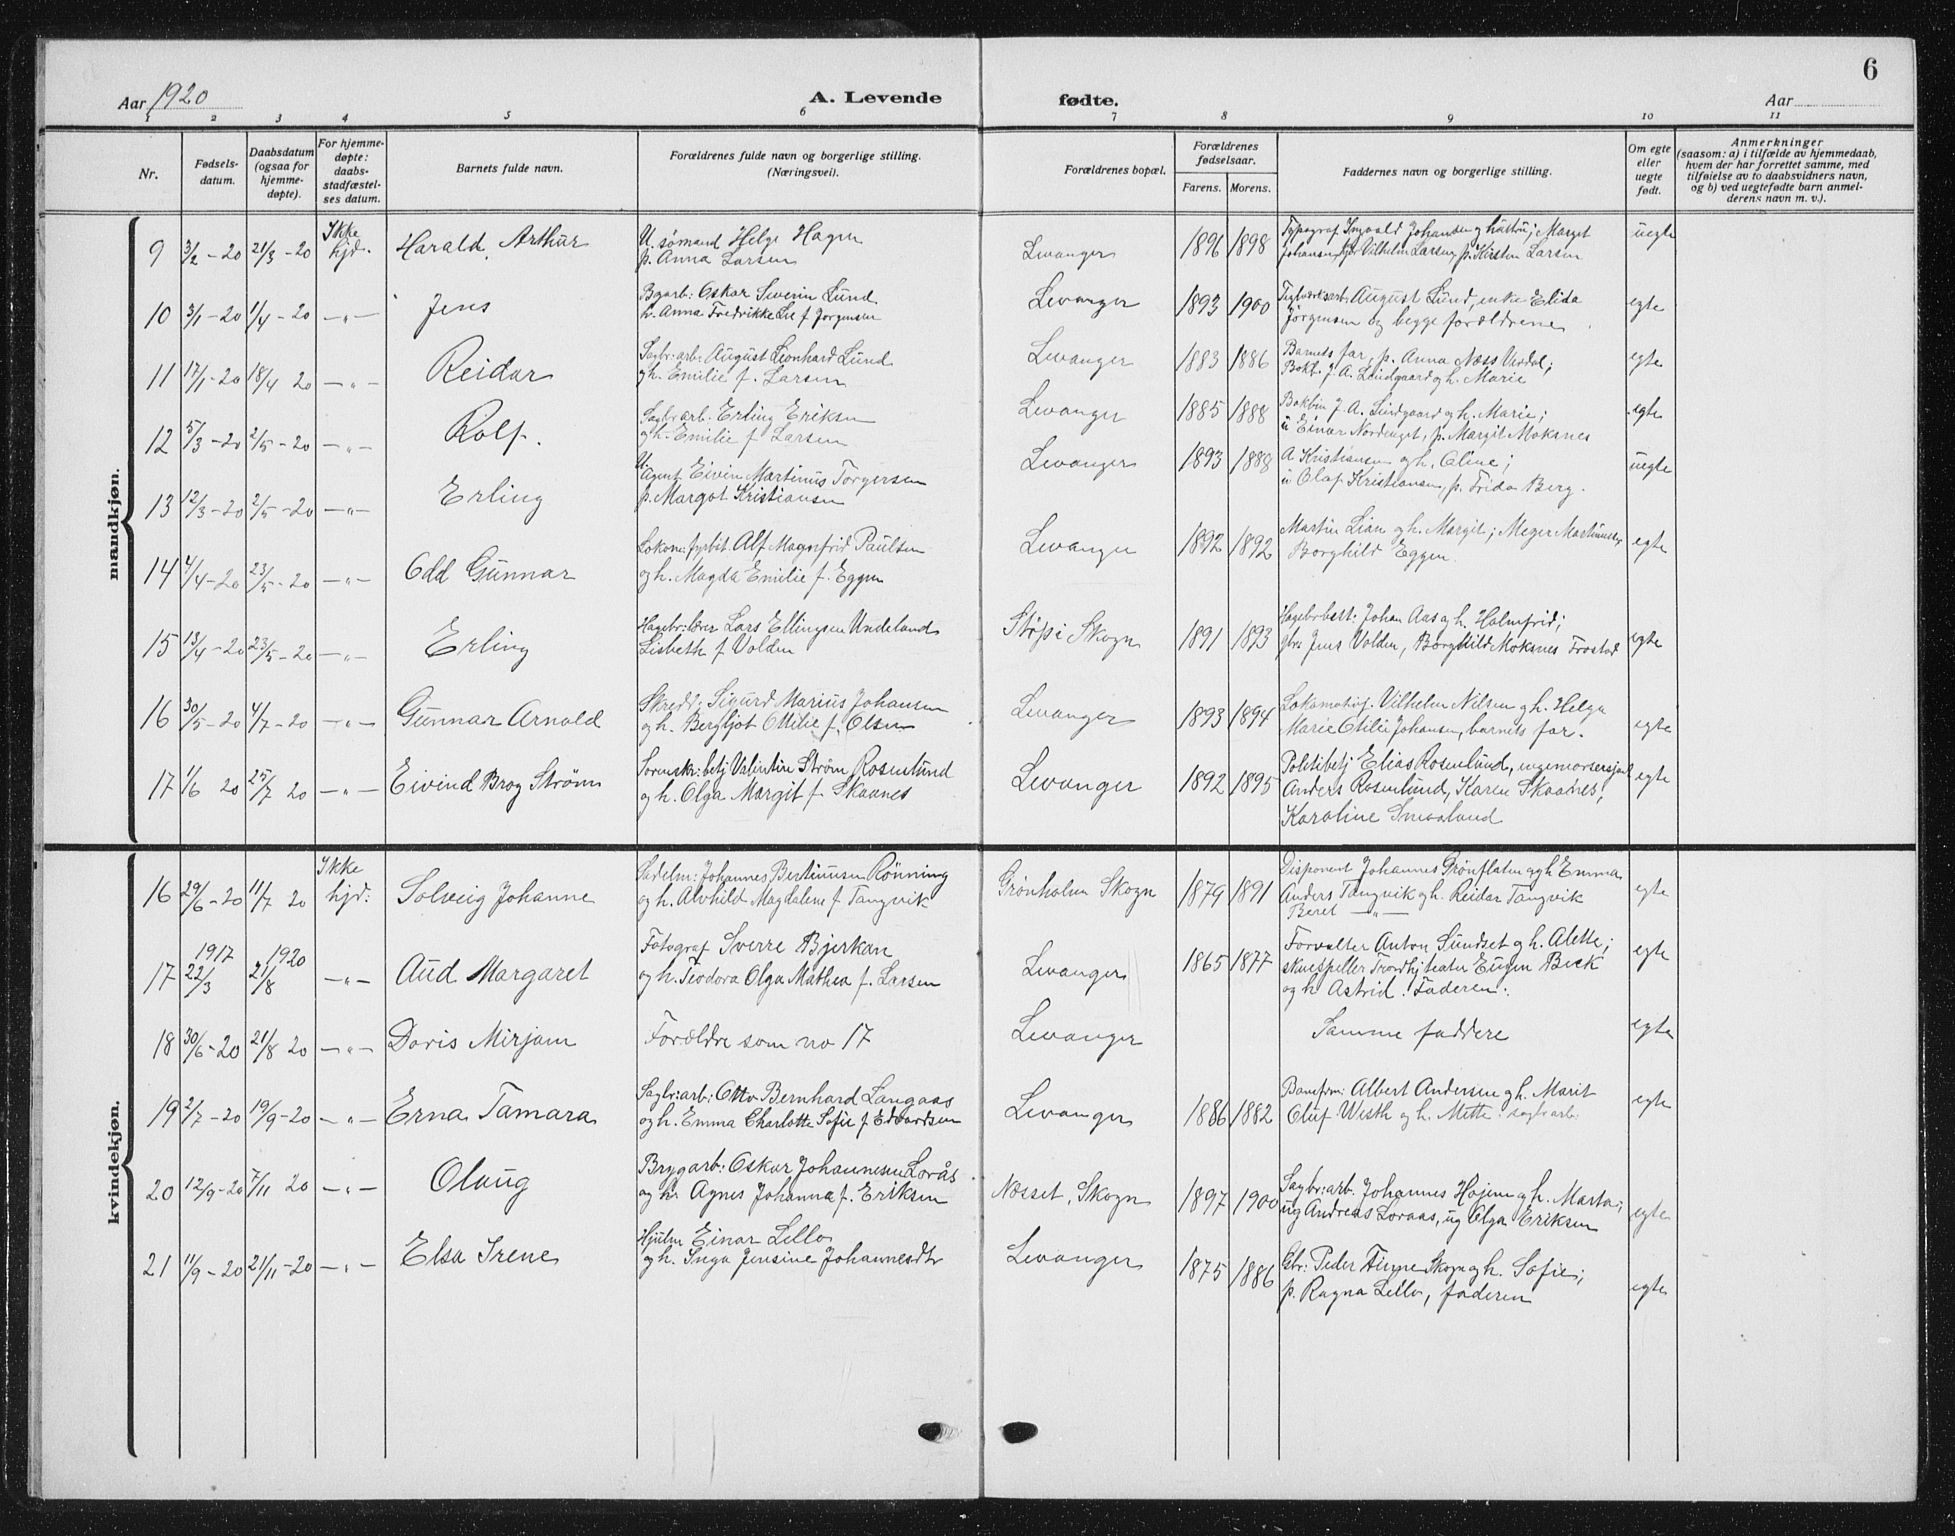 6
Aar 1920
A. Levende
fødte.
Aar
1 2 3 4 5 6 7 8 9 10 11
Nr.
Fødsels-
datum.
Daabsdatum
(ogsaa for
hjemme-
døpte).
For hjemme-
døpte:
daabs-
stadfæstel-
ses datum.
Barnets fulde navn.
Forældrenes fulde navn og borgerlige stilling.
(Næringsvei).
Forældrenes bopæl.
Forældrenes
fødselsaar.
Farens. Morens.
Faddernes navn og borgerlige stilling.
Om egte
eller
uegte
født.
Anmerkninger
(saasom: a) i tilfælde av hjemmedaab,
hvem der har forrettet samme, med
tilføielse av to daabsvidners navn,
og b) ved uegtefødte barn anmel-
derens navn m. v.).
mandkjøn.
9 3/2 - 20 21/3 - 20 Ikke hjd. Harald Arthur
U. sømand Helge Hagen
p. Anna Larsen
Levanger 1896 1898
Typograf Ingvald Johansen og hustru; Marget
Johansen, Vilhelm Larsen, p. Kirsten Larsen
uegte
10 3/1 - 20 1/4 - 20 - " - Jens
Bgarb: Oskar Severin Lund
h. Anna Fredrikke Lie f Jørgensen
Levanger 1893 1900
Teglverksarb August Lund, enke Elida
Jörgensen og begge forældrene
egte
11 17/1 - 20 18/4 20 - " - Reidar
Sagbr: arb August Leonhard Lund
og h. Emilie f. Larsen
Levanger 1883 1886
Barnets far, p. Anna Næss Verdal;
Bokb. J A. Lindgaard og h. Marie
egte
12 5/3 - 20 2/5 - 20 - " - Rolf.
Sagbr arb. Erling Eriksen
og h. Emilie f Larsen
Levanger 1885 1888
Bokbin J A. Lindgaard og h. Marie;
u Einar Nordenget, p. Margit Moksnes
egte
13 12/3 - 20 2/5 - 20 - " - Erling
U. Agent Eivin Martinius Torgersen
p. Margot Kristiansen
Levanger 1893 1888
A Kristiansen og h. Oline;
u Olaf Kristiansen, p. Frida Berg.
uegte
14 4/4 - 20 23/5 - 20 - " - Odd Gunnar
Lokom: fyrbøt. Alf Magnfrid Paulsen
og h. Magda Emilie f. Eggen
Levanger 1892 1892
Martin Lian og h. Margit; Meyer Martinussen
Borghild Eggen
egte
15 13/4 - 20 23/5 - 20 - " - Erling
Hagebr: lærer Lars Ellingsen Undeland
Lisbeth f Volden
Støp i Skogn 1891 1893
Hagebrbest: Johan Aas og h. Holmfrid;
gbr Jens Volden, Borghild Moksnes Frostad
egte
16 30/5 - 20 4/7 - 20 - " - Gunnar Arnold
Skredd; Sigurd Marius Johansen
og h. Bergljot Ottilie f. Olsen
Levanger 1893 1894
Lokomotivf. Vilhelm Nilsen og h. Helga
Marie Otilie Johansen, barnets far.
egte
17 1/6 20 25/7 20 - " - Eivind Broy Ström
Sorenskr: betj Valentin Ström Rosenlund
og h. Olga Margit f. Skaanes
Levanger 1892 1895
Politibetj Elias Rosenlund,
Anders Rosenlund, Karen Skaanes,
Karoline Smaaland
egte
kvindekjøn.
16 29/6 - 20 11/7 20 Ikke hjd: Solveig Johanne
Sadelm: Johannes Bertinusen Rönning
og h. Alvhild Magdalene f Tangvik
Grønholm Skogn 1879 1891
Disponent Johannes Grönflaten og h Emma
Anders Tangvik og h. Reidar Tangvik
Beret - " -
egte
17 1917 22/3 1920 21/8 - " - Aud Margaret
Fotograf Sverre Bjerkan
og h. Teodora Olga Mathea f. Larsen
Levanger 1865 1877
Forvalter Anton Sundset og h. Alette;
skuespiller Trondhj teater Eugen Beck
og h Astrid. Faderen.
egte
18 30/6 - 20 21/8 20 - " - Doris Mirjam
Forældre som no 17
Levanger
Samme faddere
egte
19 2/7 - 20 19/9 - 20 - " - Erna Tamara
Sagbr: arb: Otto Bernhard Langaas
og h. Emma Charlotte Sofie f Edvardsen
Levanger 1886 1882
Baneform: Albert Andersen og h. Marit
Oluf Wisth og h. Mette: sagbr arb:
egte
20 12/9 - 20 7/11 20 - " - Olaug
Brygarb: Oskar Johannesen Lorås
og h. Agnes Johanna f. Eriksen
Nesset, Skogn 1897 1900
Sagbr: arb. Johannes Hojem og h. Marta;
ug Andreas Loraas, ug Olga Eriksen
egte
21 11/9 - 20 21/11 - 20 - " - Elsa Irene
Hjulm Einar Lello
og h. Inga Jensine Johannesdtr
Levanger 1875 1886
Gbr: Peder Finne Skogn og h. Sofie;
p. Ragna Lello, faderen
egte